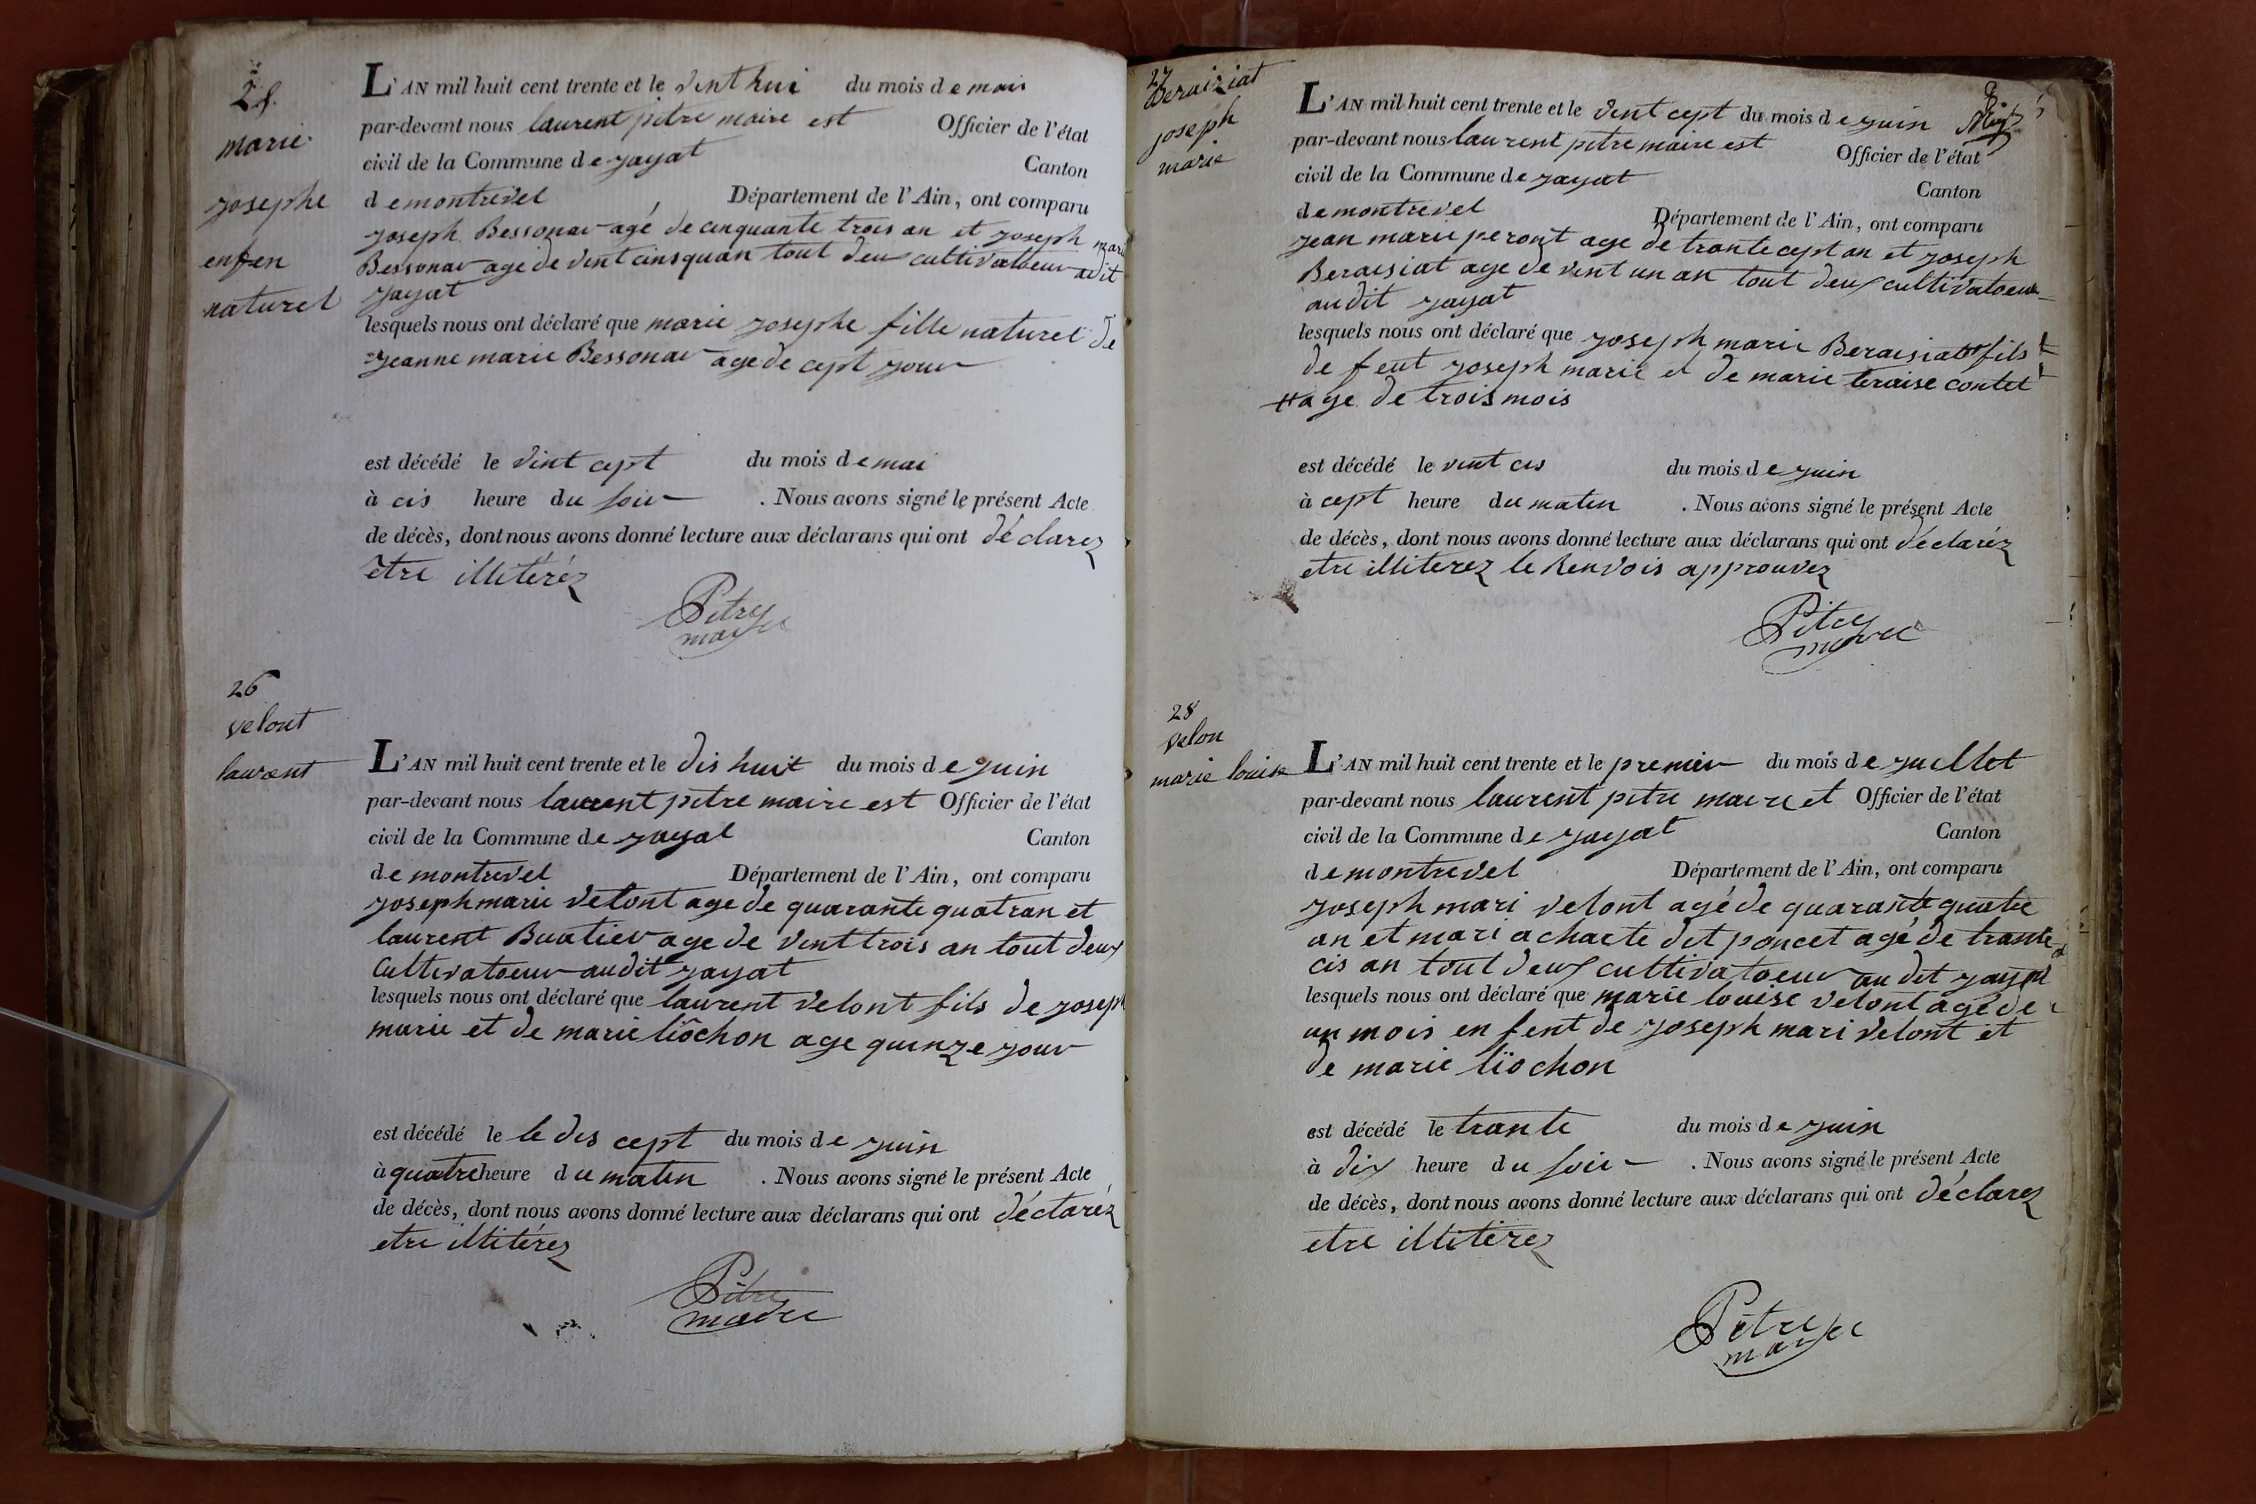 25.
marie
josephe
enfen
naturel
L'AN mil huit cent trente et le vint hui du mois de mais
par-devant nous laurent pitre maire est Officier de l'état
civil de la Commune de jayat Canton
de montrevel Département de l'Ain, ont comparu
joseph Bessonar agé de cinquante trois an et joseph mari
Bessonar age de vint cinsquan tout deus cultivatoeur audit
jayat
lesquels nous ont déclaré que marie josephe fille naturel de
jeanne marie Bessonar age de cept jour
est décédé le vint cept du mois de mai
à cis heure du soir . Nous avons signé le présent Acte
de décès, dont nous avons donné lecture aux déclarans qui ont déclarez
etre illitéréz
Pitre
maire
26
velont
laurent
L'AN mil huit cent trente et le dis huit du mois de juin
par-devant nous laurent pitre maire est Officier de l'état
civil de la Commune de jayat Canton
de montrevel Département de l'Ain, ont comparu
joseph marie velont age de quarante quatran et
laurent Buatier age de vint trois an tout deux
cultivatoeur audit jayat
lesquels nous ont déclaré que laurent velont fils de joseph
marie et de marie liôchon age quinze jour
est décédé le le dis cept du mois de juin
à quatre heure du maten . Nous avons signé le présent Acte
de décès, dont nous avons donné lecture aux déclarans qui ont déclaréz
etre illitéréz
Pitre
maire
27
Beraiziat
joseph
marie
L'AN mil huit cent trente et le vint cept du mois de juin
par-devant nous laurent pitre maire est Officier de l'état
civil de la Commune de jayat Canton
de montrevel Département de l'Ain, ont comparu
jean marie peront age de trante cept an et joseph
Beraisiat age de vint un an tout deux cultivatoeur
audit jayat
lesquels nous ont déclaré que joseph marie Beraisiat fils
de feut joseph marie et de marie teraise contet
age de trois mois
est décédé le vent cis du mois de juin
à cept heure du maten . Nous avons signé le présent Acte
de décès, dont nous avons donné lecture aux déclarans qui ont déclaréz
etre illiterez le Renvois approuvez
Pitre
maire
28
velon
marie louise
L'AN mil huit cent trente et le premier du mois de juellet
par-devant nous laurent pitre maire et Officier de l'état
civil de la Commune de jayat Canton
de montrevel Département de l'Ain, ont comparu
joseph mari velont agé de quarante quatre
an et mari acharte dit poncet agé de trante
cis an tout deux cultivatoeur au dit jayat
lesquels nous ont déclaré que marie louise velont agé de
un mois en fent de joseph mari velont et
de marie liochon
est décédé le trante du mois de juin
à dix heure du soir . Nous avons signé le présent Acte
de décès, dont nous avons donné lecture aux déclarans qui ont déclarez
etre illitérez
Pitre
maire